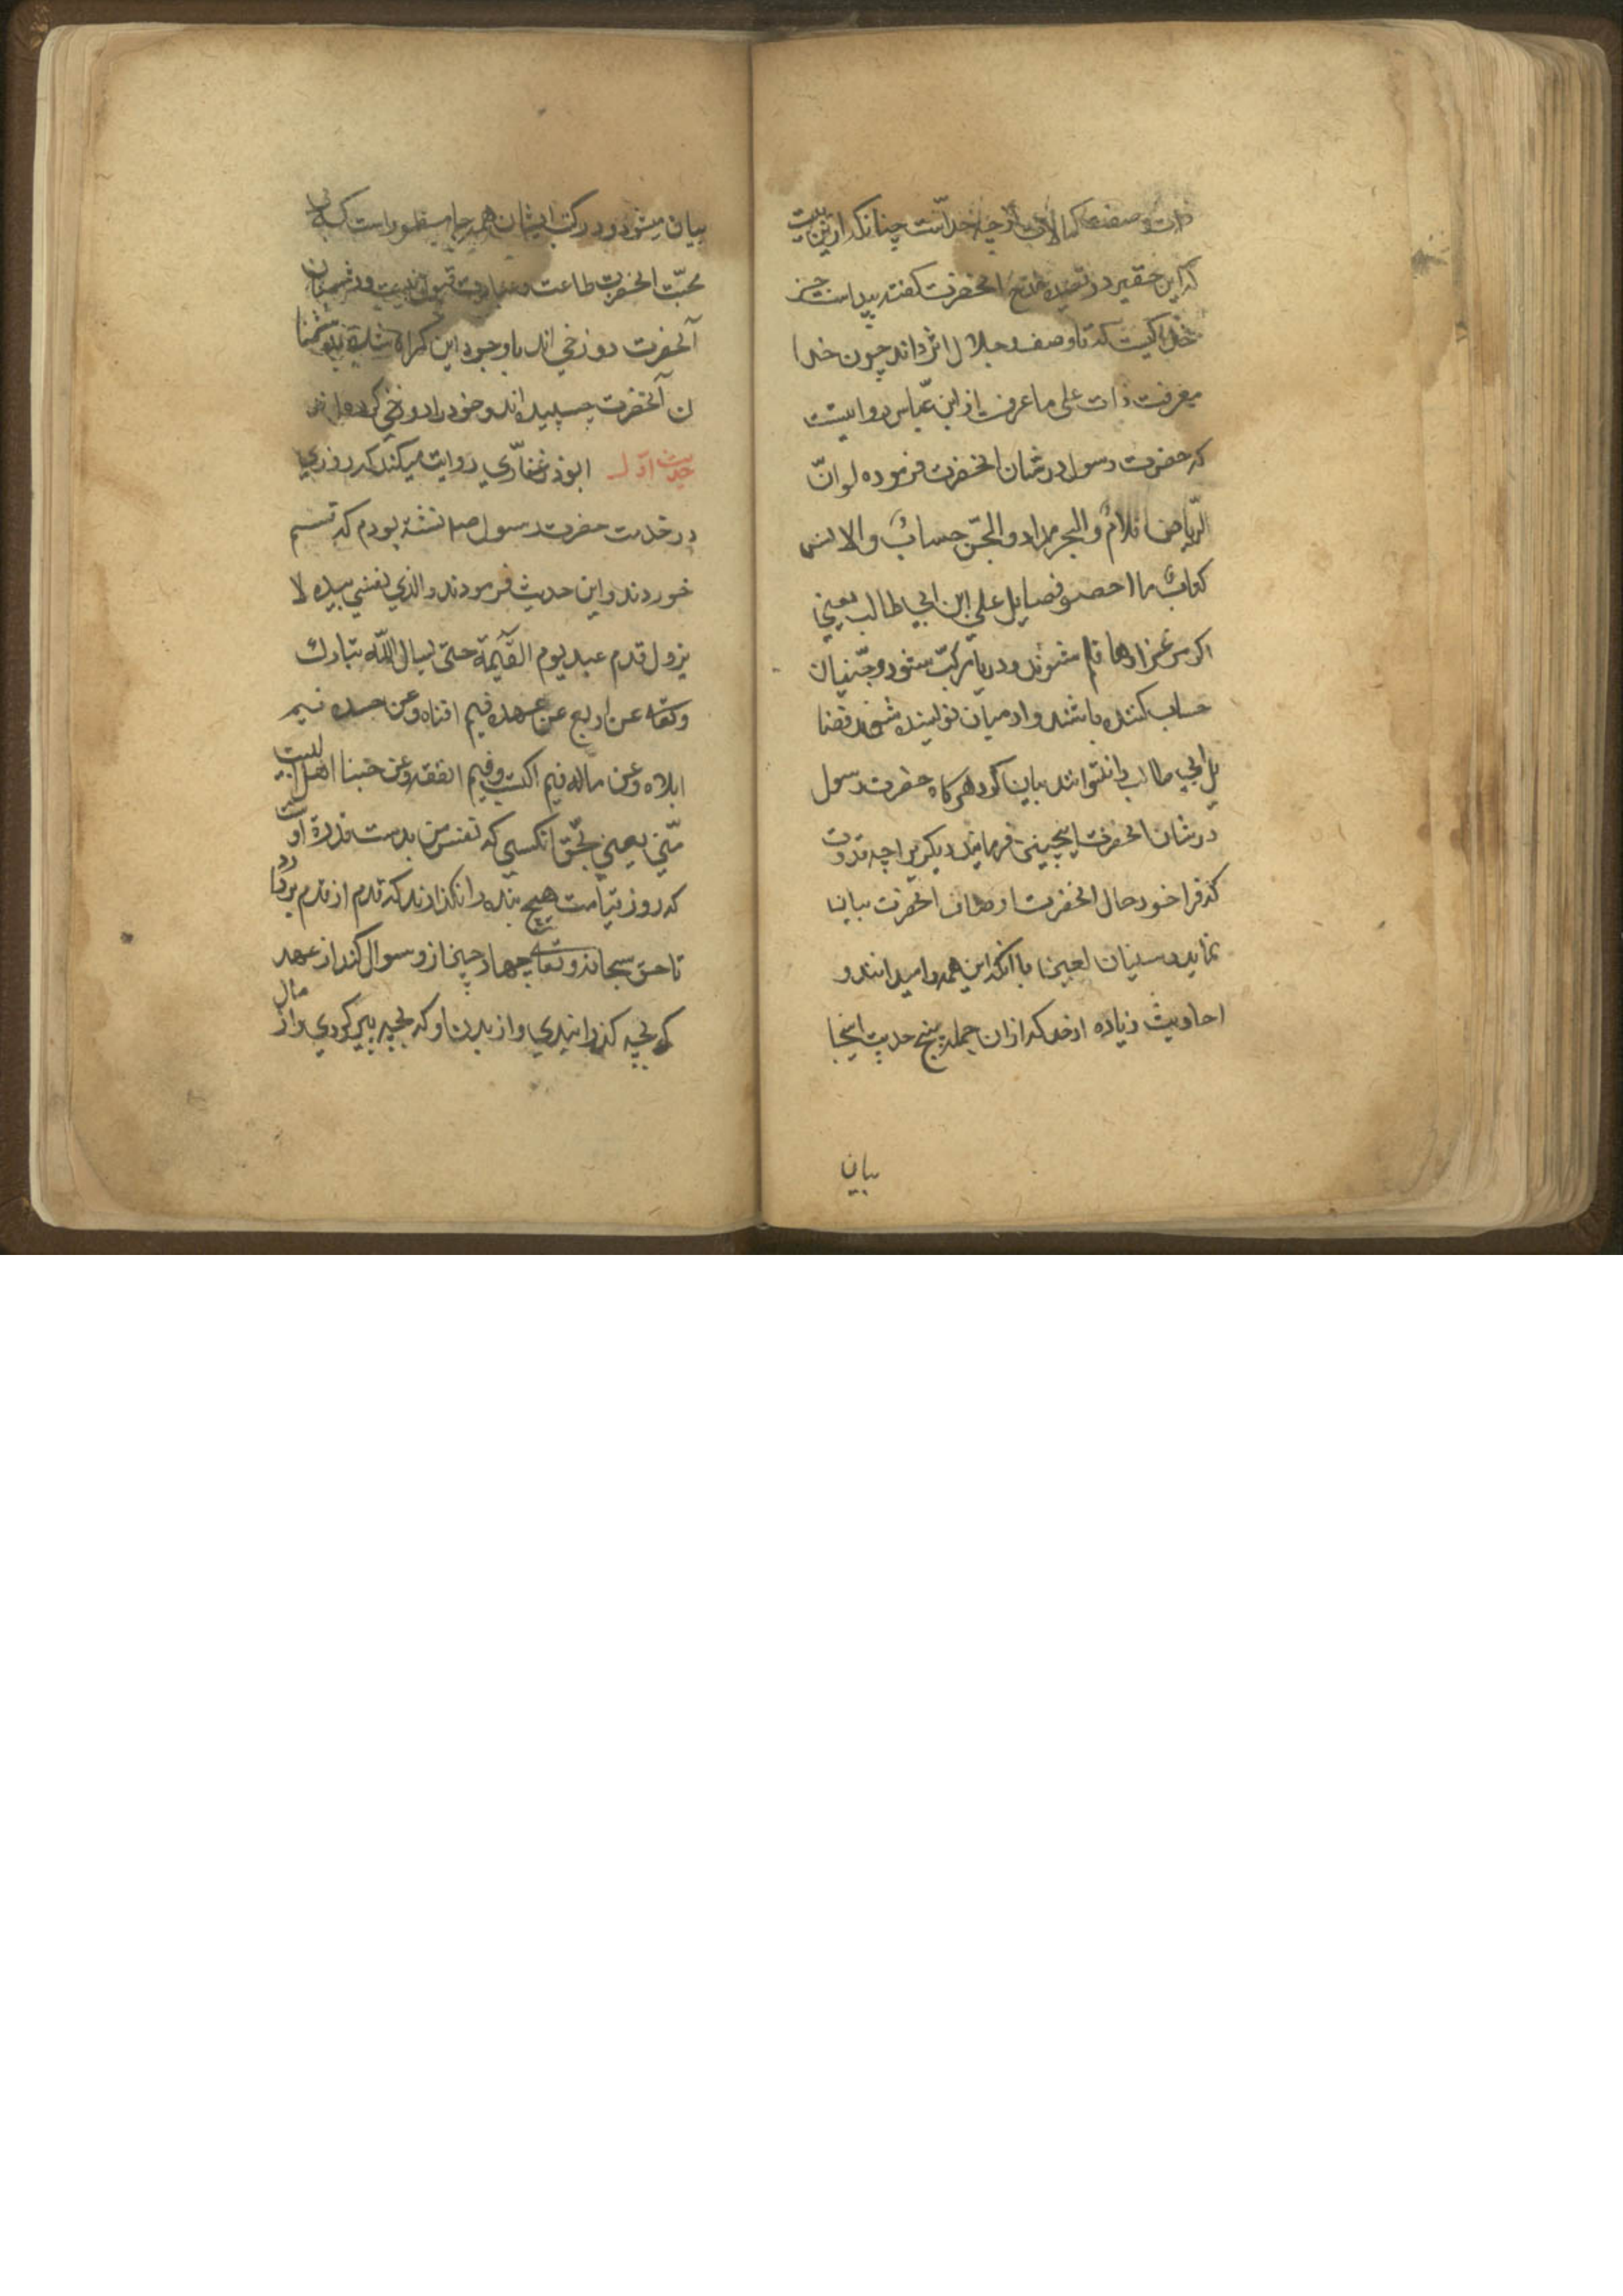 ذات و صفت کمالات او چه خداست چنانکه ازین بیت
که این حقیر در قصیده مدح انحضرت کفته پیداست جز
خدا کیست که تا وصف جلالش داند چون خدا
معرفت ذات علی ما عرف از ابن عباس روایتست
که حضرت رسول در شان انحضرت فرموده لو انّ
الریاض اقلامٌ والبحر مداد والجنّ حسابٌ والانس
کتابٌ ما احصو فضایل علی ابن ابی طالب یعنی
اکر مرغزارها قلم شوند و دریا مرکّب شود و جنّیان
حساب کننده باشند و ادمیان نویسنده شوند فضا
یل ابی طالب را نتوانند بیان کرد هرکاه حضرت رسول
در شان انحضرت اینچنین فرمایند دیکری را چه قدرت
که فراخور حال انحضرت اوصاف انحضرت بیان
نماید و سنیان لعین با انکه این همه را میدانند و
احادیث زیاده ازحد که از ان جمله پنج حدیث اینجا
بیان
بیان میشود و در کتب ایشان همه جا مسطور است که بی
محبّت انحضرت طاعت و عبادت قبول نیست و دشمنان
آنحضرت دوزخی اند با وجود این کمراه شده بدشمنا
ن آنحضرت چسپیده اند و خود را دوزخی کرده اند
حدیث اوّل ابوذر غفّاری روایت میکند که روزی
در خدمت حضرت رسول صلم نشسته بودم که قسم
خوردند و این حدیث فرمودند والذی نفسی بیده لا
یزول قدم عبد یوم القیمة حتی یسال اللّه تبارک
وتعالی عن اربع عن عمره فیم افناه وعن جسده فیم
ابلاه وعن ماله فیم اکتسب وفیم انفقه وعن حبنا اهل البیت
متّنی یعنی بحقّ انکسی که نفس من بدست قدرة اوست
که روز قیامت هیچ بنده را نکذارند که قدم از قدم بردارد
تا حق سبحانه و تعالی چهار چیز از و سوال کند از عمر
که بچه کذرانیدی و از بدن او که بچه پیر کردی و از مال